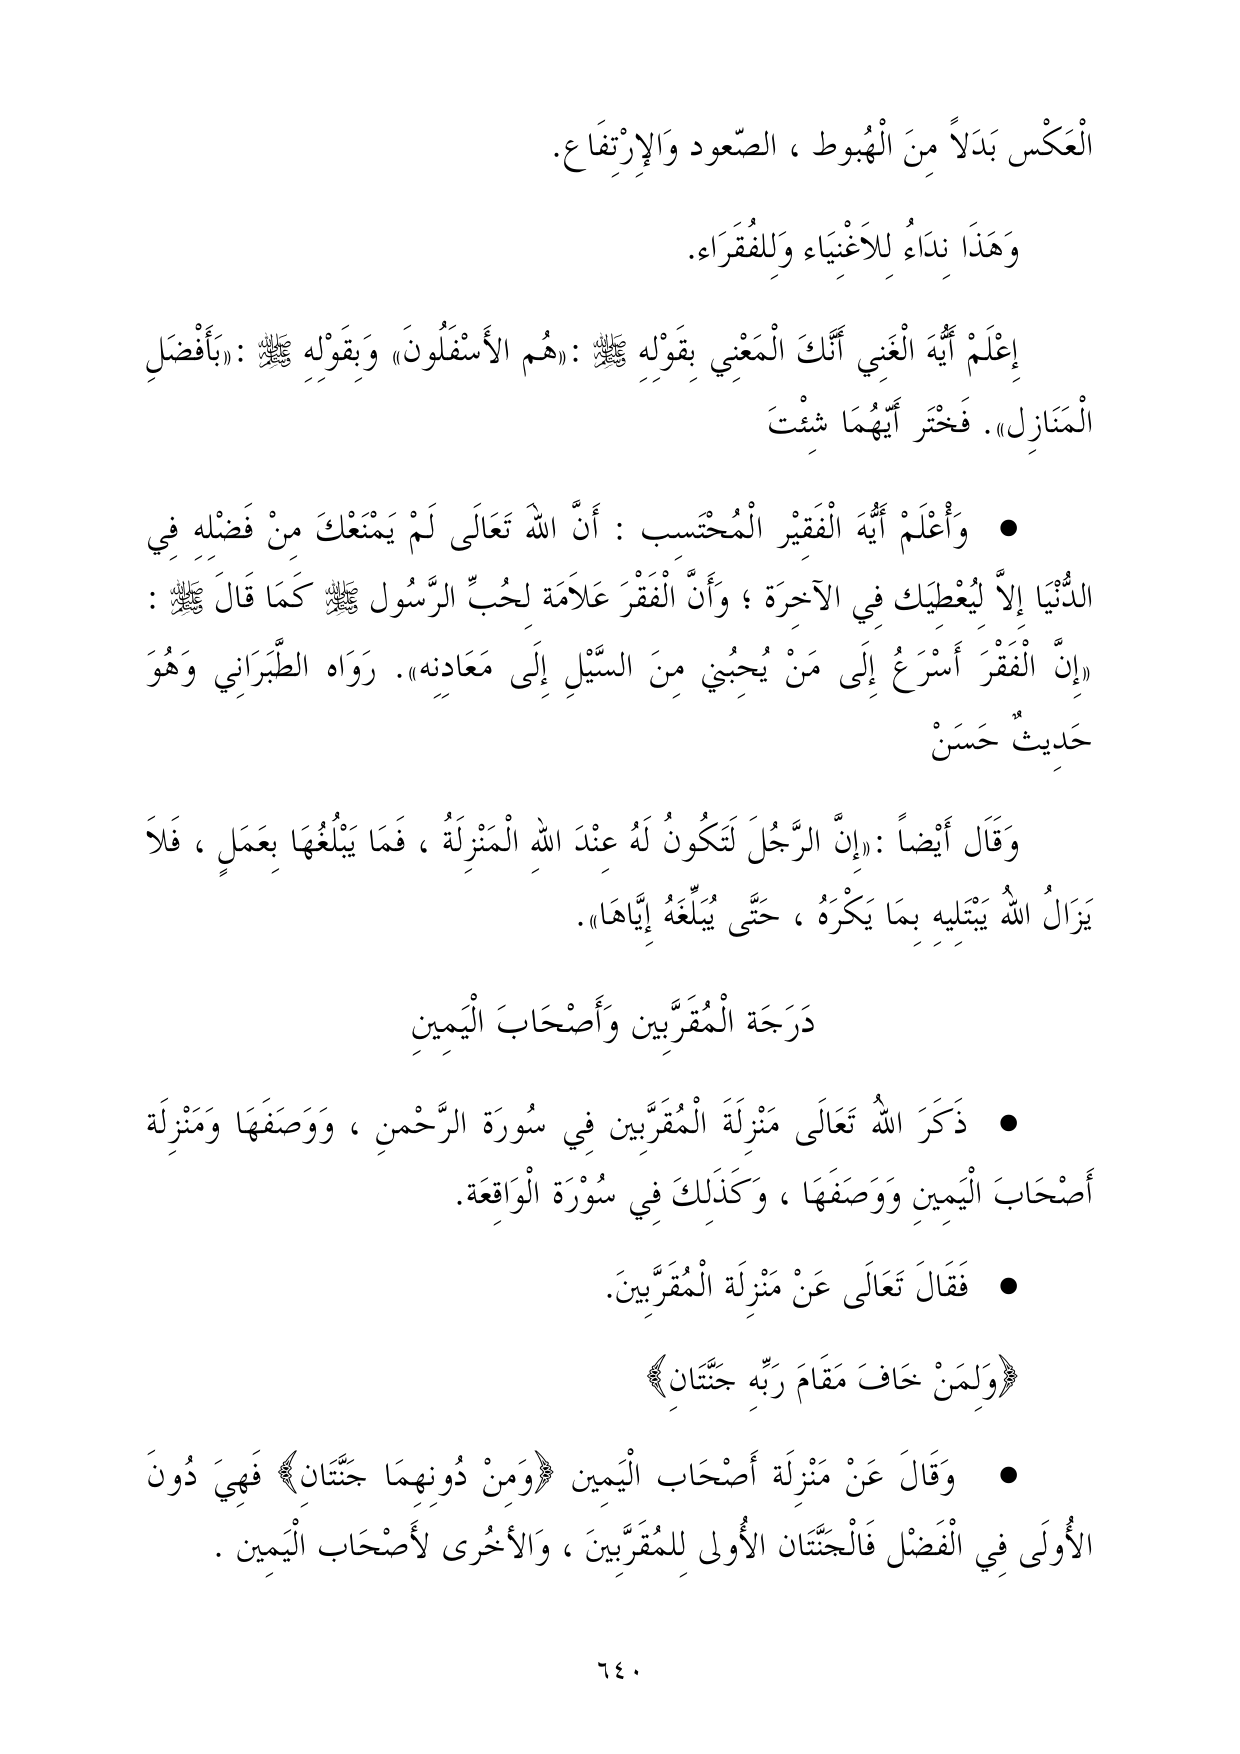 الْعَكْس بَدَلاً مِنَ الْهُبوط ، الصّعود وَالإِرْتِفَاع.
وَهَذَا نِدَاءُ لِلاَغْنِيَاء وَلِلفُقَرَاء.
إِعْلَمْ أَيُّهَ الْغَنِي أَنَّكَ الْمَعْنِي بِقَوْلِهِ ﷺ :«هُم الأَسْفَلُونَ» وَبِقَوْلِهِ ﷺ :«بَأَفْضَلِ
الْمَنَازِل». فَخْتَر أَيّهُمَا شِئْتَ
● وَأْعْلَمْ أَيُّهَ الْفَقِيْر الْمُحْتَسِب : أَنَّ اللهَ تَعَالَى لَمْ يَمْنَعْكَ مِنْ فَضْلِهِ فِي
الدُّنْيَا إِلاَّ لِيُعْطِيَك فِي الآخِرَة ؛ وَأَنَّ الْفَقْرَ عَلاَمَة لِحُبِّ الرَّسُول ﷺ كَمَا قَالَ ﷺ :
«إِنَّ الْفَقْرَ أَسْرَعُ إِلَى مَنْ يُحِبُنِي مِنَ السَّيْلِ إِلَى مَعَادِنِه». رَوَاه الطَّبَرَانِي وَهُوَ
حَدِيثٌ حَسَنْ
وَقَاَل أَيْضاً :«إِنَّ الرَّجُلَ لَتَكُونُ لَهُ عِنْدَ اللهِ الْمَنْزِلَةُ ، فَمَا يَبْلُغُهَا بِعَمَلٍ ، فَلاَ
يَزَالُ اللهُ يَبْتَلِيهِ بِمَا يَكْرَهُ ، حَتَّى يُبَلِّغَهُ إِيَّاهَا».
دَرَجَة الْمُقَرَّبِين وَأَصْحَابَ الْيَمِينِ
● ذَكَرَ اللهُ تَعَالَى مَنْزِلَةَ الْمُقَرَّبِين فِي سُورَة الرَّحْمنِ ، وَوَصَفَهَا وَمَنْزِلَة
أَصْحَابَ الْيَمِينِ وَوَصَفَهَا ، وَكَذَلِكَ فِي سُوْرَة الْوَاقِعَة.
● فَقَالَ تَعَالَى عَنْ مَنْزِلَة الْمُقَرَّبِينَ.
﴿وَلِمَنْ خَافَ مَقَامَ رَبِّهِ جَنَّتَانِ﴾
● وَقَالَ عَنْ مَنْزِلَة أَصْحَاب الْيَمِين ﴿وَمِنْ دُونِهِمَا جَنَّتَانِ﴾ فَهِيَ دُونَ
الأُولَى فِي الْفَضْل فَالْجَنَّتَان الأُولى لِلمُقَرَّبِينَ ، وَالأخُرى لأَصْحَاب الْيَمِين .
٦٤٠